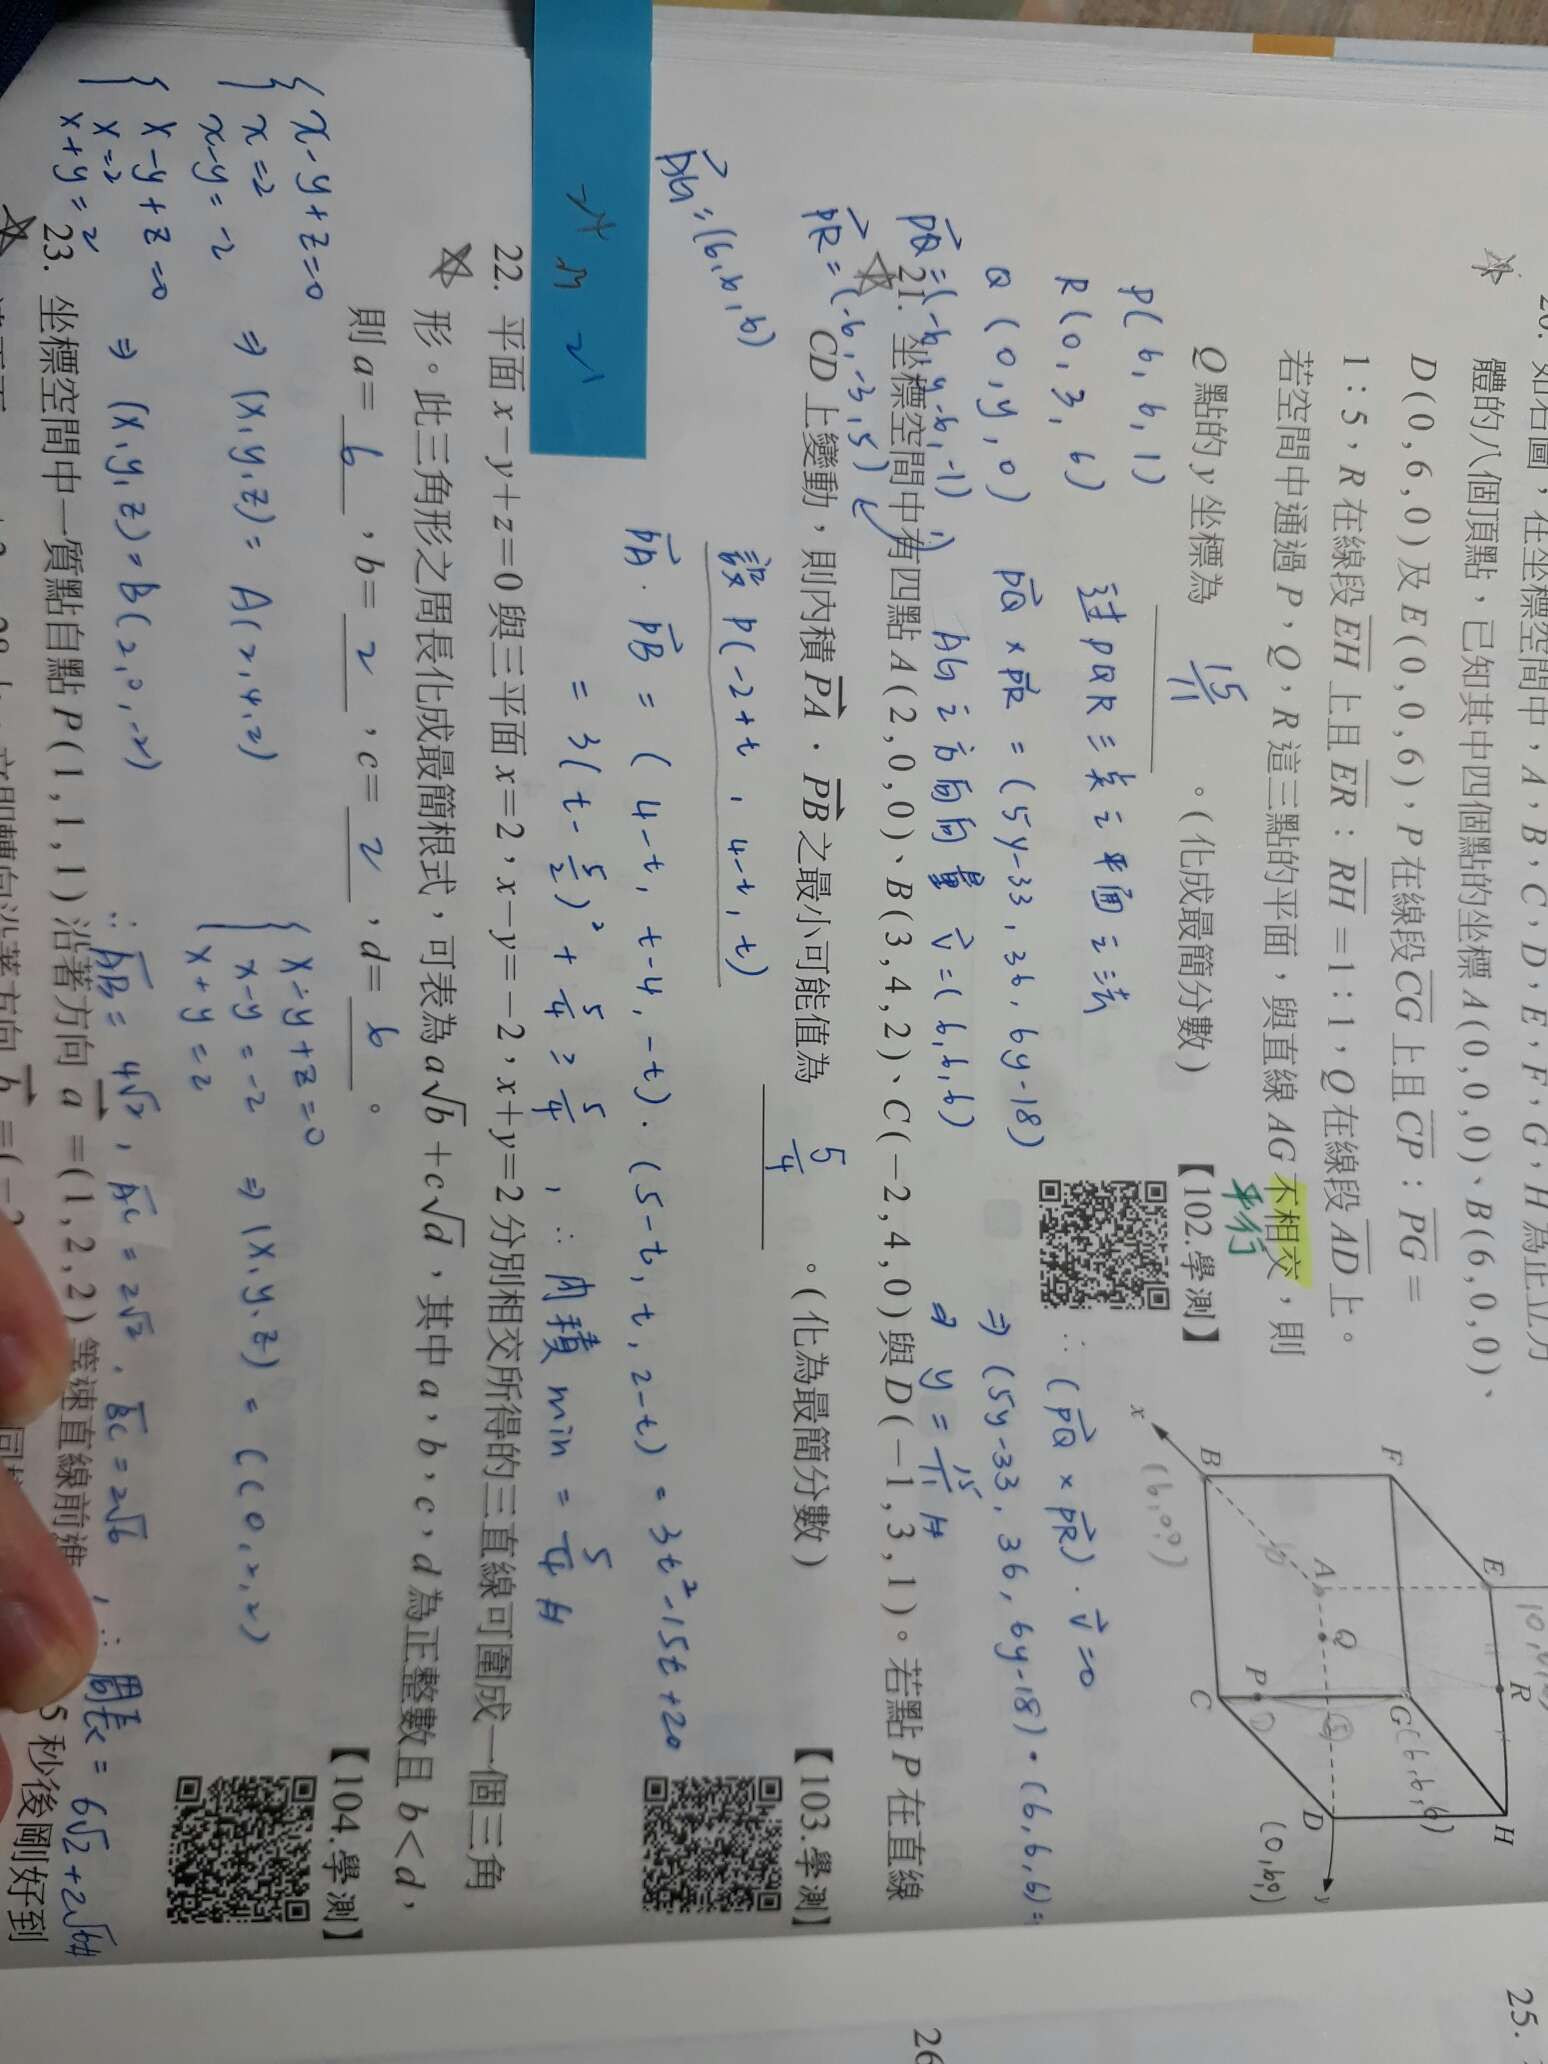 20. 如右圖，在坐標空間中，A，B，C，D，E，F，G，H 為正立方
體的八個頂點，已知其中四個點的坐標 A(0,0,0)、B(6,0,0)、
D(0,6,0) 及 E(0,0,6)，P 在線段 CG 上且 CP：PG =
1：5，R 在線段 EH 上且 ER：RH = 1：1，Q 在線段 AD 上。
若空間中通過 P，Q，R 這三點的平面，與直線 AG 不相交，則
平行
Q 點的 y 坐標為 15/11 。(化成最簡分數)
【102.學測】
F
E
R
H
B
A
Q
G(6,6,6)
P
C
D
x
y
(0,6,0)
P(6,6,1)
R(0,3,6)
Q(0,y,0)
PQ=(-6,y-6,-1)
PR=(-6,-3,5)
AG=(6,6,6)
过PQR三点之平面之法
PQ×PR=(5y-33,36,6y-18)
AG之方向向量 v=(6,6,6)
∴(PQ×PR)·v=0
⇒(5y-33,36,6y-18)·(6,6,6)=
⇒ y=15/11
21. 坐標空間中有四點 A(2,0,0)、B(3,4,2)、C(-2,4,0) 與 D(-1,3,1)。若點 P 在直線
CD 上變動，則內積 PA · PB 之最小可能值為 5/4 。(化為最簡分數)
【103.學測】
設 P(-2+t, 4-t, t)
PA·PB=(4-t, t-4, -t)·(5-t, t, 2-t)=3t²-15t+20
=3(t-5/2)²+5/4≥5/4，∴內積 min=5/4
22. 平面 x-y+z=0 與三平面 x=2，x-y=-2，x+y=2 分別相交所得的三直線可圍成一個三角
形。此三角形之周長化成最簡根式，可表為 a√b+c√d，其中 a，b，c，d 為正整數且 b<d，
則 a= 6 ，b= 2 ，c= 2 ，d= 6 。
【104.學測】
x-y+z=0
x=2
x-y=-2
⇒(x,y,z)=A(2,4,2)
x-y+z=0
x=2
x+y=2
⇒(x,y,z)=B(2,0,-2)
x-y+z=0
x-y=-2
x+y=2
⇒(x,y,z)=C(0,2,2)
∴AB=4√2，AC=2√2，BC=2√6
，∴周長=6√2+2√6
23. 坐標空間中一質點自點 P(1,1,1) 沿著方向 a=(1,2,2) 等速直線前進
5 秒後剛好到
25.
26